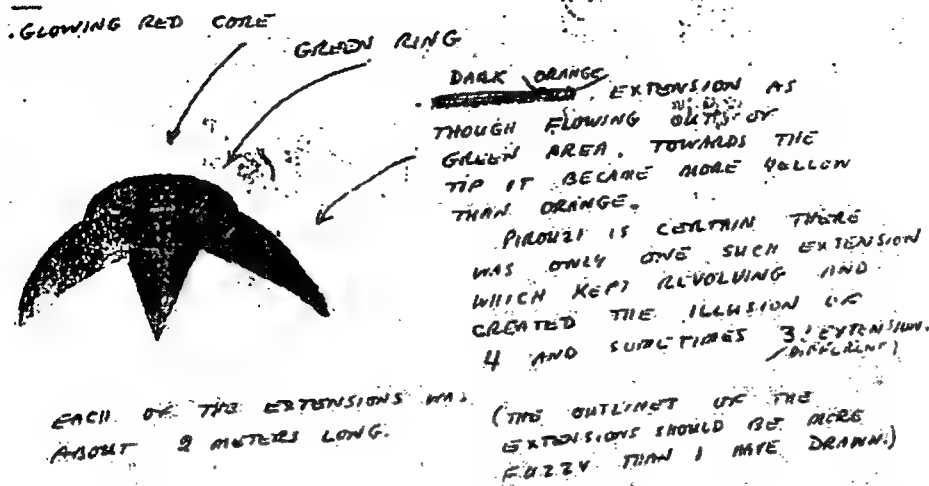 GLOWING RED CORE
GREEN RING
DARK ORANGE
EXTENSION AS
THOUGH FLOWING OUT OF
GREEN AREA. TOWARDS THE
TIP IT BECAME MORE YELLOW
THAN ORANGE.
PIROUZI IS CERTAIN THERE
WAS ONLY ONE SUCH EXTENSION
WHICH KEPT REVOLVING AND
CREATED THE ILLUSION OF
4 AND SOMETIMES 3 EXTENSION.
DIFFERENT)
EACH OF THE EXTENSIONS WAS
ABOUT 2 METERS LONG.
(THE OUTLINES OF THE
EXTENSIONS SHOULD BE MORE
FUZZY THAN I HAVE DRAWN.)